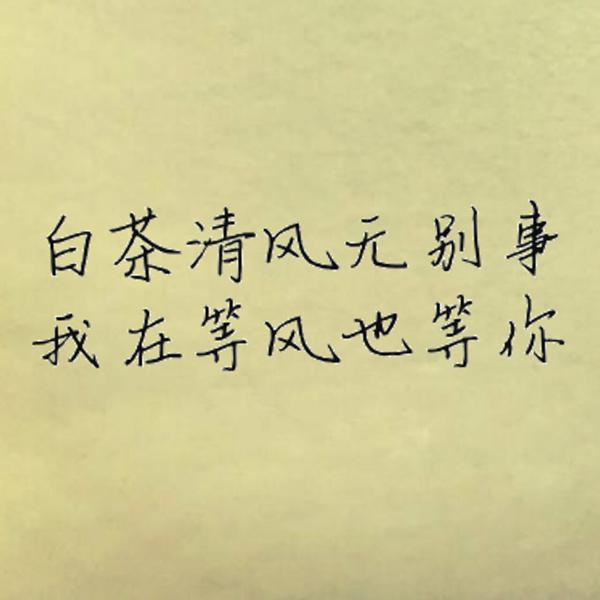 白茶清风无别事
我在等风也等你